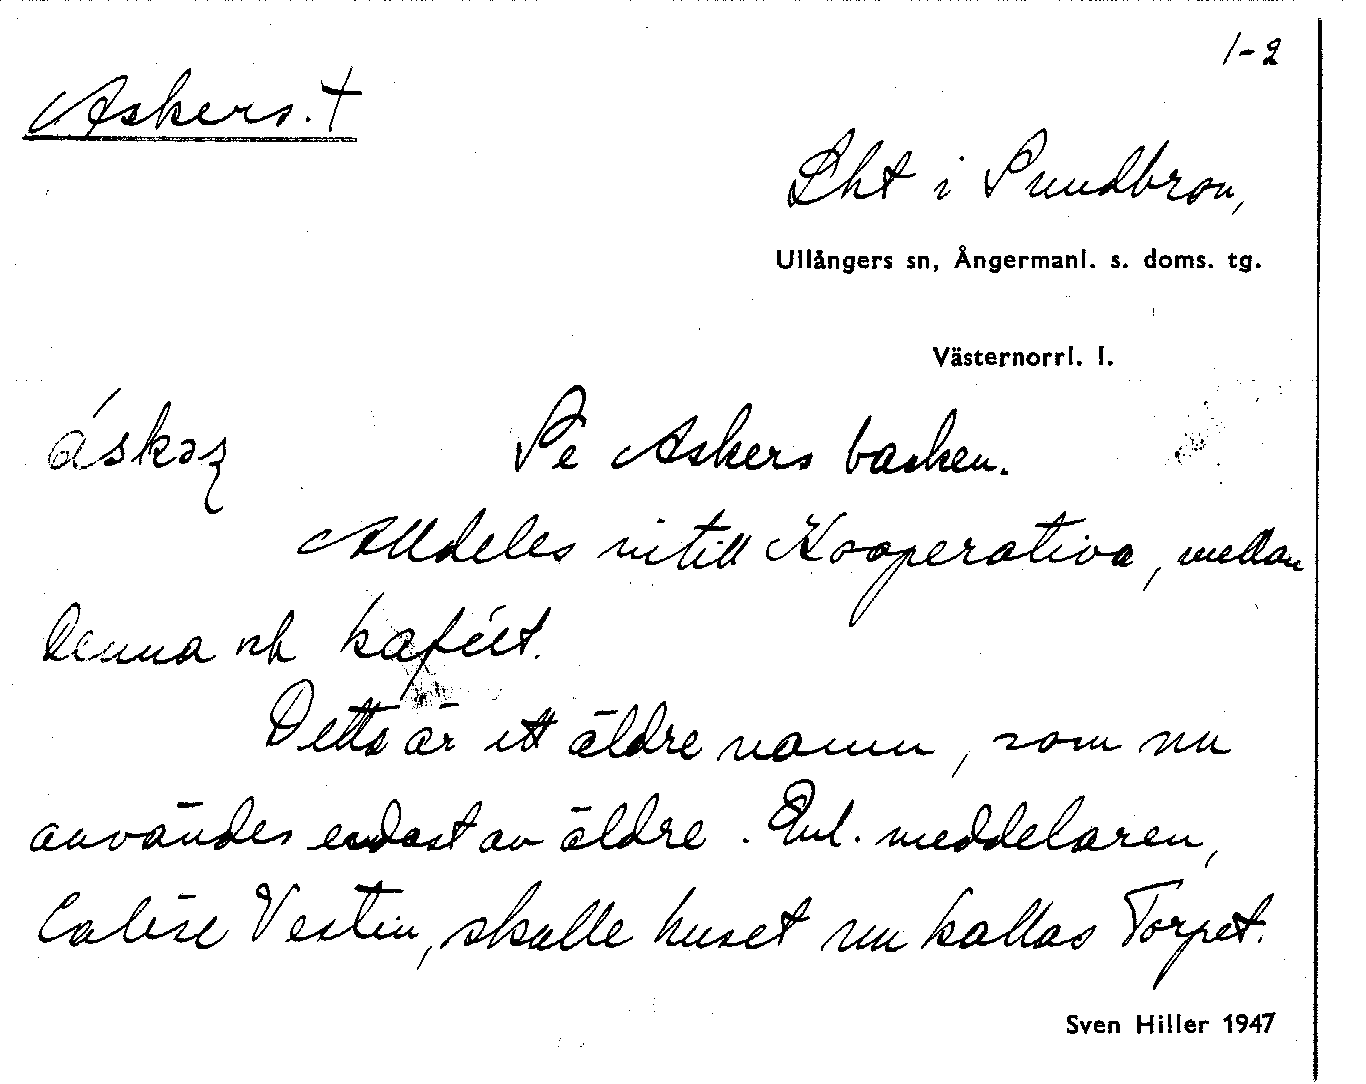 1-2
Askers. †
Lht i Sundbron,
Ullångers sn, Ångermanl. s. doms. tg.
Västernorrl. l.
áskəʐ Se Askers backen.
Alldeles intill Kooperativa, mellan
denna och kaféet.
Detta är ett äldre namn, som nu
användes endast av äldre. Enl. meddelaren,
Vestin, skulle huset nu kallas Torpet.
Sven Hiller 1947